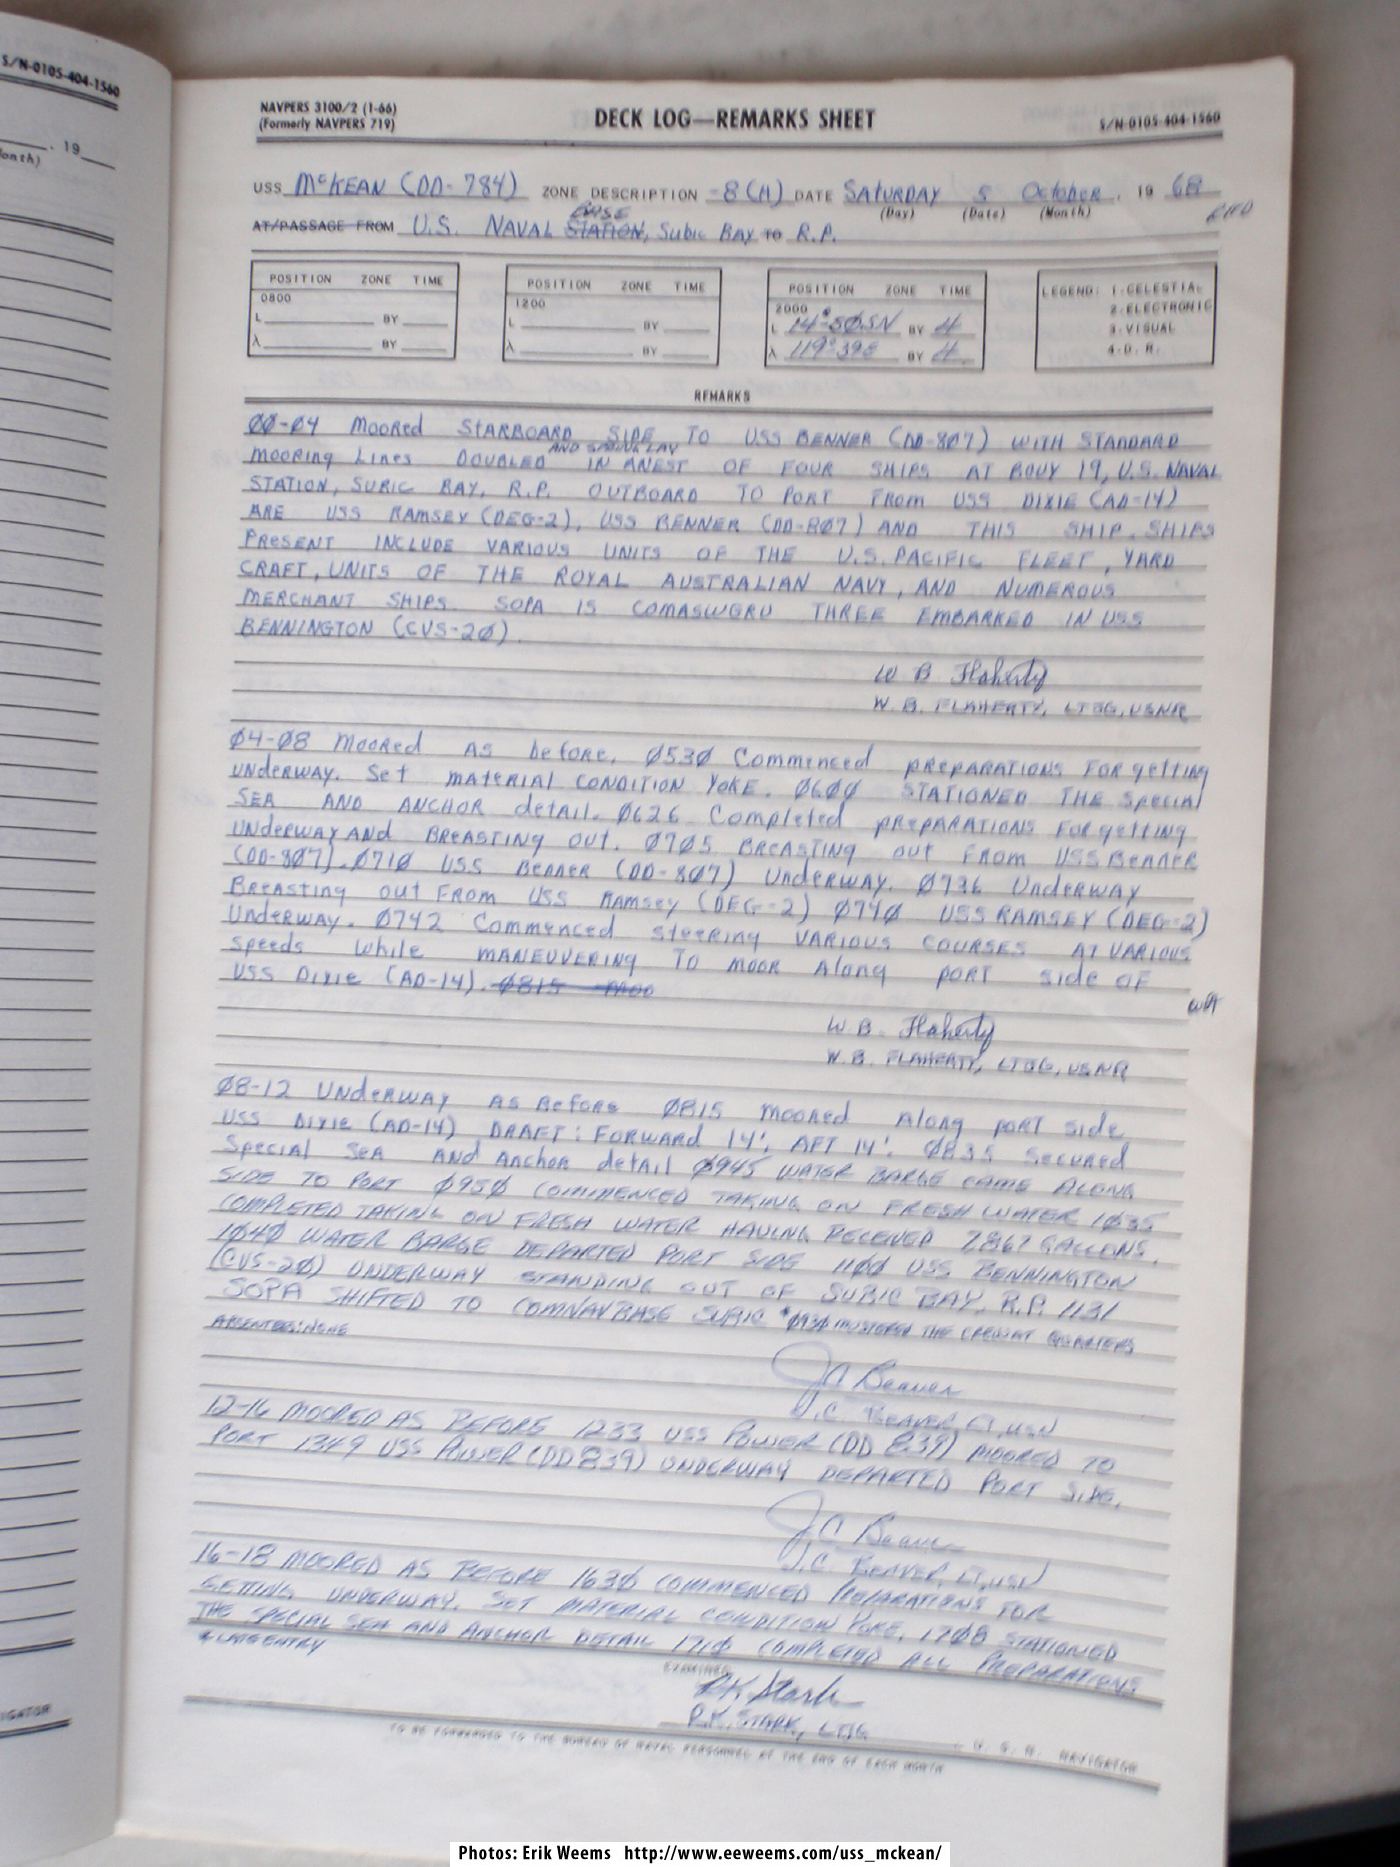 S/N-0105-404-1560
, 19
onth)
IGATOR
NAVPERS 3100/2 (1-66)
(Formerly NAVPERS 719)
DECK LOG—REMARKS SHEET
S/N-0105-404-1560
USS McKEAN (DD-784) ZONE DESCRIPTION -8 (H) DATE SATURDAY 5 October, 19 68
(Day) (Date) (Month)
BASE
AT/PASSAGE FROM U.S. NAVAL STATION, Subic BAY TO R.P.
POSITION ZONE TIME
0800
L BY
λ BY
POSITION ZONE TIME
1200
L BY
λ BY
POSITION ZONE TIME
2000
L 14°-5Ø.5N BY 4
λ 119°39E BY 4
LEGEND: 1-CELESTIAL
2-ELECTRONIC
3-VISUAL
4-D. R.
REMARKS
ØØ-Ø4 MooRed STARBOARD SIDE TO USS BENNER (DD-8Ø7) WITH STANDARD
AND SPRING LAY
MOORING LINES DOUBLED IN A NEST OF FOUR SHIPS AT BOUY 19, U.S. NAVAL
STATION, SUBIC BAY, R.P. OUTBOARD TO PORT FROM USS DIXIE (AD-14)
ARE USS RAMSEY (DEG-2), USS BENNER (DD-8Ø7) AND THIS SHIP. SHIPS
PRESENT INCLUDE VARIOUS UNITS OF THE U.S. PACIFIC FLEET, YARD
CRAFT, UNITS OF THE ROYAL AUSTRALIAN NAVY, AND NUMEROUS
MERCHANT SHIPS. SOPA IS COMASWGRU THREE EMBARKED IN USS
BENNINGTON (CVS-2Ø).
W B Flaherty
W. B. FLAHERTY, LTJG, USNR
Ø4-Ø8 Moored As before. Ø53Ø Commenced PREPARATIONS FOR getting
UNderWAY. Set MATERIAL CONDITION YOKE. Ø6ØØ STATIONED THE Special
SEA AND ANCHOR detail. Ø626 Completed PREPARATIONS FOR getting
UNderWAY AND BREASTING OUT. Ø7Ø5 BREASTING out FROM USS BeNNeR
(DD-8Ø7). Ø71Ø USS BeNNeR (DD-8Ø7) UNdeRWAY. Ø736 UNdeRWAY
BReASTING out FROM USS RAMSEY (DEG-2) Ø74Ø USS RAMSEY (DEG-2)
UNdeRWAY. Ø742 Commenced steeRING VARIOUS COURSES AT VARIOUS
speeds while MANEUVERING TO MOOR AloNg PORT side OF
USS DIXIe (AD-14). Ø815
W. B. Flaherty
W. B. FLAHERTY, LTJG, USNR
Ø8-12 UNdeRWAY AS BeFoRe Ø815 MOORed AloNg PORT side
USS DIXIE (AD-14) DRAFT: FORWARD 14', AFT 14'. Ø835 SECURED
Special SEA AND ANCHOR detail Ø945 WATER BARGE CAME ALONG
SIDE TO PORT Ø95Ø COMMENCED TAKING ON FRESH WATER 1Ø35
COMPLETED TAKING ON FRESH WATER HAVING RECEIVED 7867 GALLONS.
1Ø4Ø WATER BARGE DEPARTED PORT SIDE 11ØØ USS BENNINGTON
(CVS-2Ø) UNDERWAY STANDING OUT OF SUBIC BAY, R.P. 1131
SOPA SHIFTED TO COMNAVBASE SUBIC * Ø93Ø MUSTERED THE CREW AT QUARTERS
ABSENTEES: NONE
J C Beaver
J. C. BEAVER LT, USN
12-16 MOORED AS BEFORE 1233 USS POWER (DD 839) MOORED TO
PORT 1349 USS POWER (DD 839) UNDERWAY DEPARTED PORT SIDE.
J C Beaver
J. C. BEAVER, LT, USN
16-18 MOORED AS BEFORE 163Ø COMMENCED PREPARATIONS FOR
GETTING UNDERWAY. SET MATERIAL CONDITION YOKE. 17Ø8 STATIONED
THE SPECIAL SEA AND ANCHOR DETAIL 171Ø COMPLETED ALL PREPARATIONS
* LATE ENTRY
EXAMINED
R.K. Stark
R.K. STARK, LTJG
, U. S. N. NAVIGATOR
TO BE FORWARDED TO THE BUREAU OF NAVAL PERSONNEL AT THE END OF EACH MONTH
Photos: Erik Weems http://www.eeweems.com/uss_mckean/